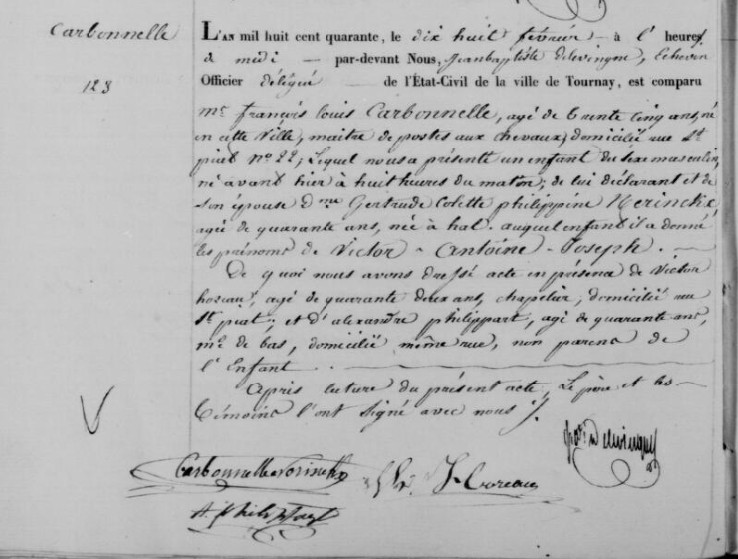 Carbonnelle
128
L'AN mil huit cent quarante, le dix huit février à l' heures
de midi par-devant Nous, jeanbaptiste Delevingne, Echevin
Officier délégué de l'État-Civil de la ville de Tournay, est comparu
Mr. françois louis Carbonnelle, agé de trente cinq ans, né
en cette ville, maitre de postes aux chevaux, domicilié rue St.
piat No. 22; Lequel nous a présenté un enfant du sexe masculin,
né avant hier à huit heures du matin, de lui déclarant et de
son épouse Dme Gertrude Colette philippine Nerinckx,
agée de quarante ans, née à hal. auquel enfant il a donné
les prénoms de Victor - Antoine - Joseph.
De quoi nous avons dressé acte en présence de Victor
agé de quarante deux ans, chapelier, domicilié rue
St. piat; et d'alexandre philippart, agé de quarante ans,
md. de bas, domicilié même rue, non parens de
l'Enfant.
Après lecture du présent acte, Le père et les
témoins l'ont signé avec nous
Carbonnelle Nerinckx
A. philippart